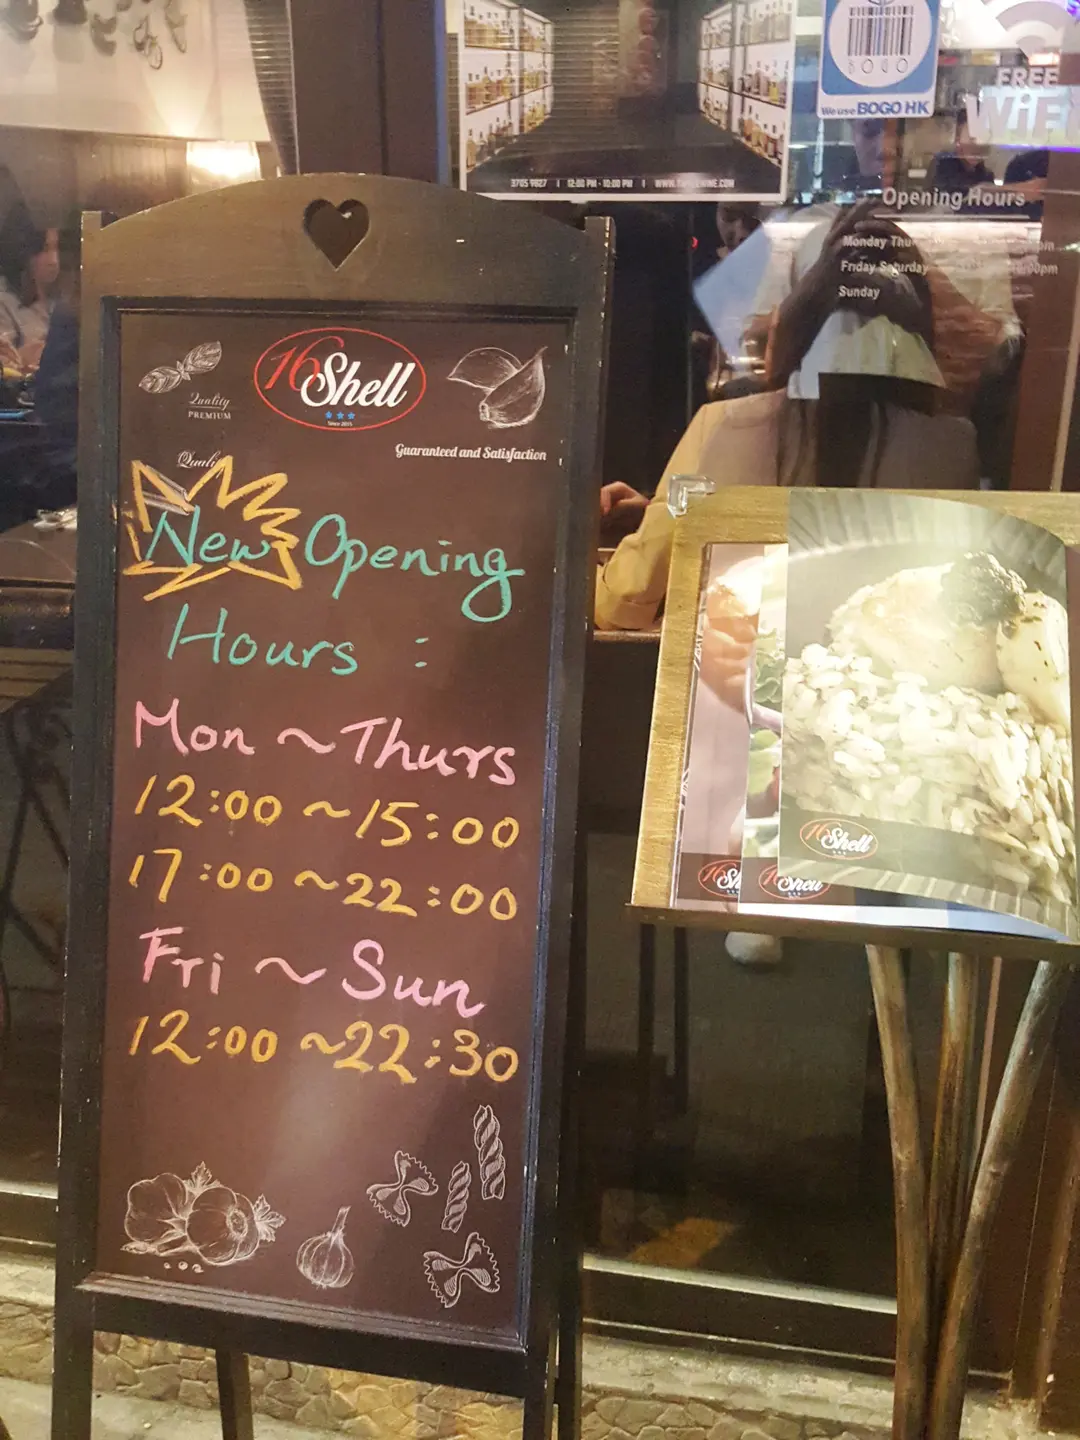 BOGO
We use BOGO HK
FREE
WiFi
3705 9827 | 12:00 PM - 10:00 PM |
Opening Hours
Monday
Friday Saturday
Sunday
16 Shell
Since 2015
Quality
PREMIUM
Guaranteed and Satisfaction
New Opening
Hours :
Mon ~ Thurs
12:00 ~ 15:00
17:00 ~ 22:00
Fri ~ Sun
12:00 ~ 22:30
16 Shell
16 Shell